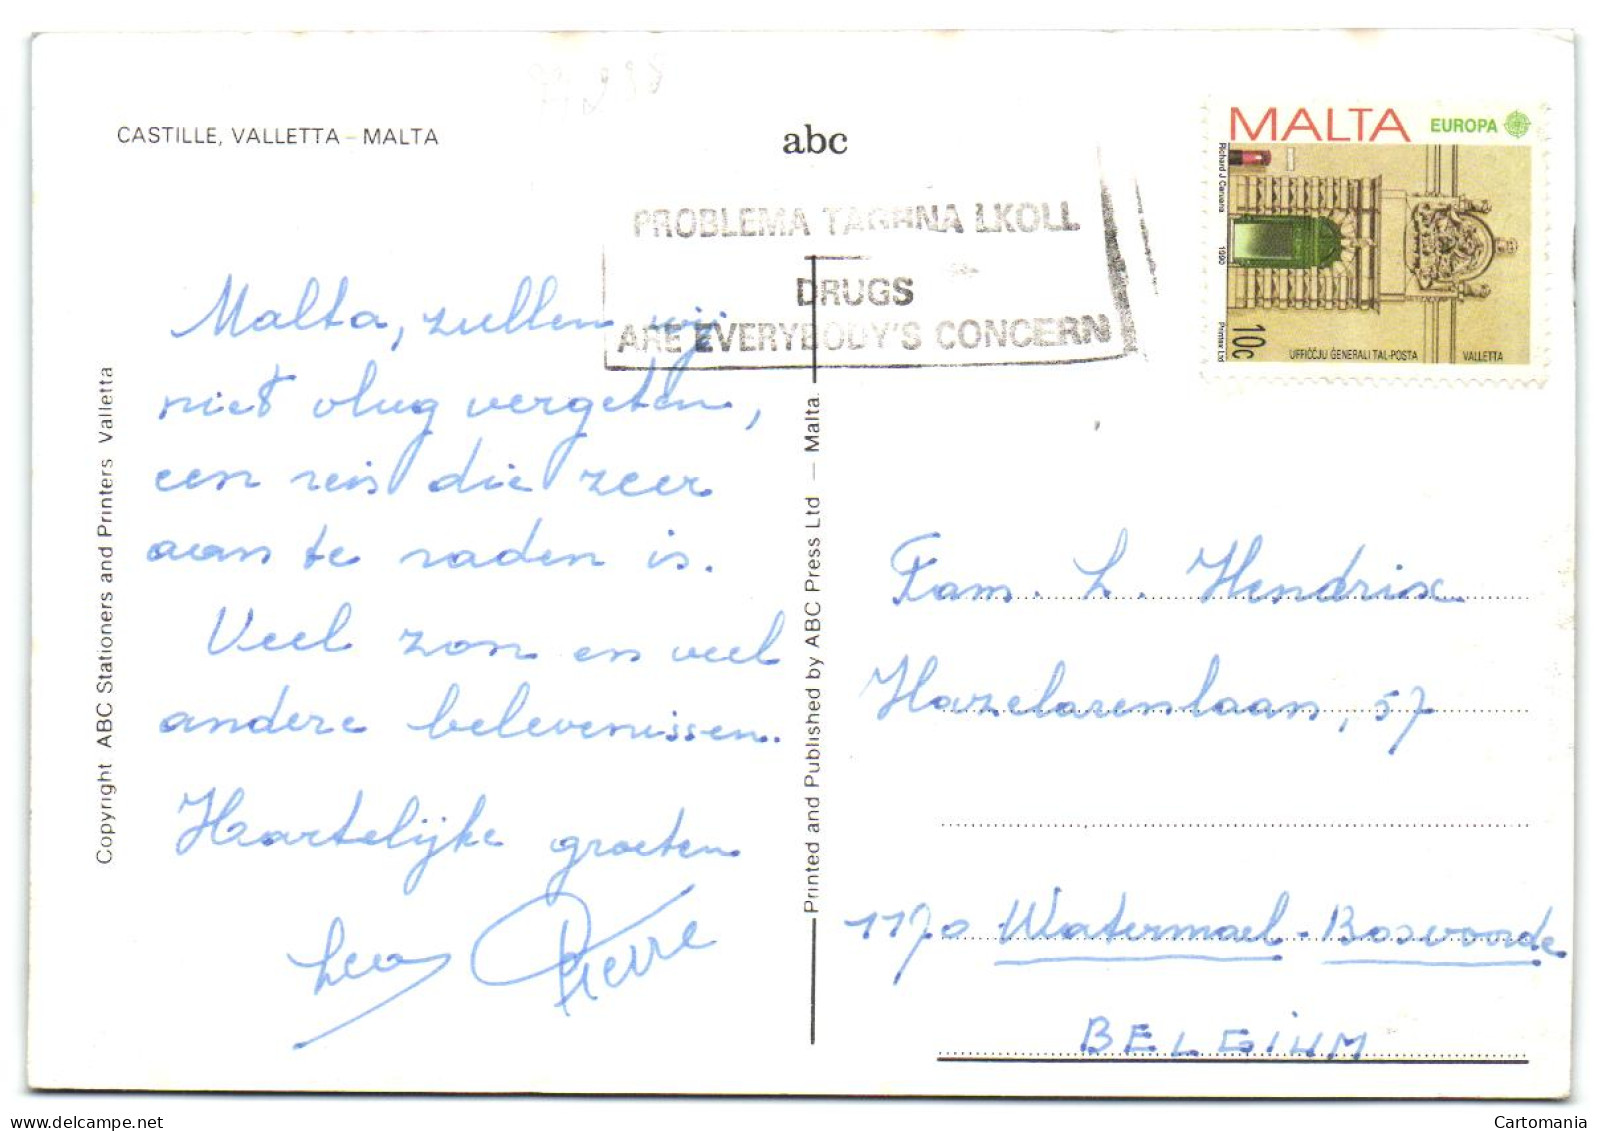 CASTILLE, VALLETTA – MALTA
abc
PROBLEMA TAGHNA LKOLL
DRUGS
ARE EVERYBODY'S CONCERN
MALTA EUROPA
Richard J Caruana 1990 Printex Ltd
10c
UFFIĊĊJU ĠENERALI TAL-POSTA VALLETTA
Malta, zullen wij
niet vlug vergeten,
een reis die zeer
aan te raden is.
Veel zon en veel
andere belevenissen.
Hartelijke groeten
Pierre
Copyright ABC Stationers and Printers Valletta
Printed and Published by ABC Press Ltd — Malta.
Fam. L. Hendrix
Hazelarenlaan, 57
1170 Watermael-Bosvoorde
BELGIUM
Cartomania